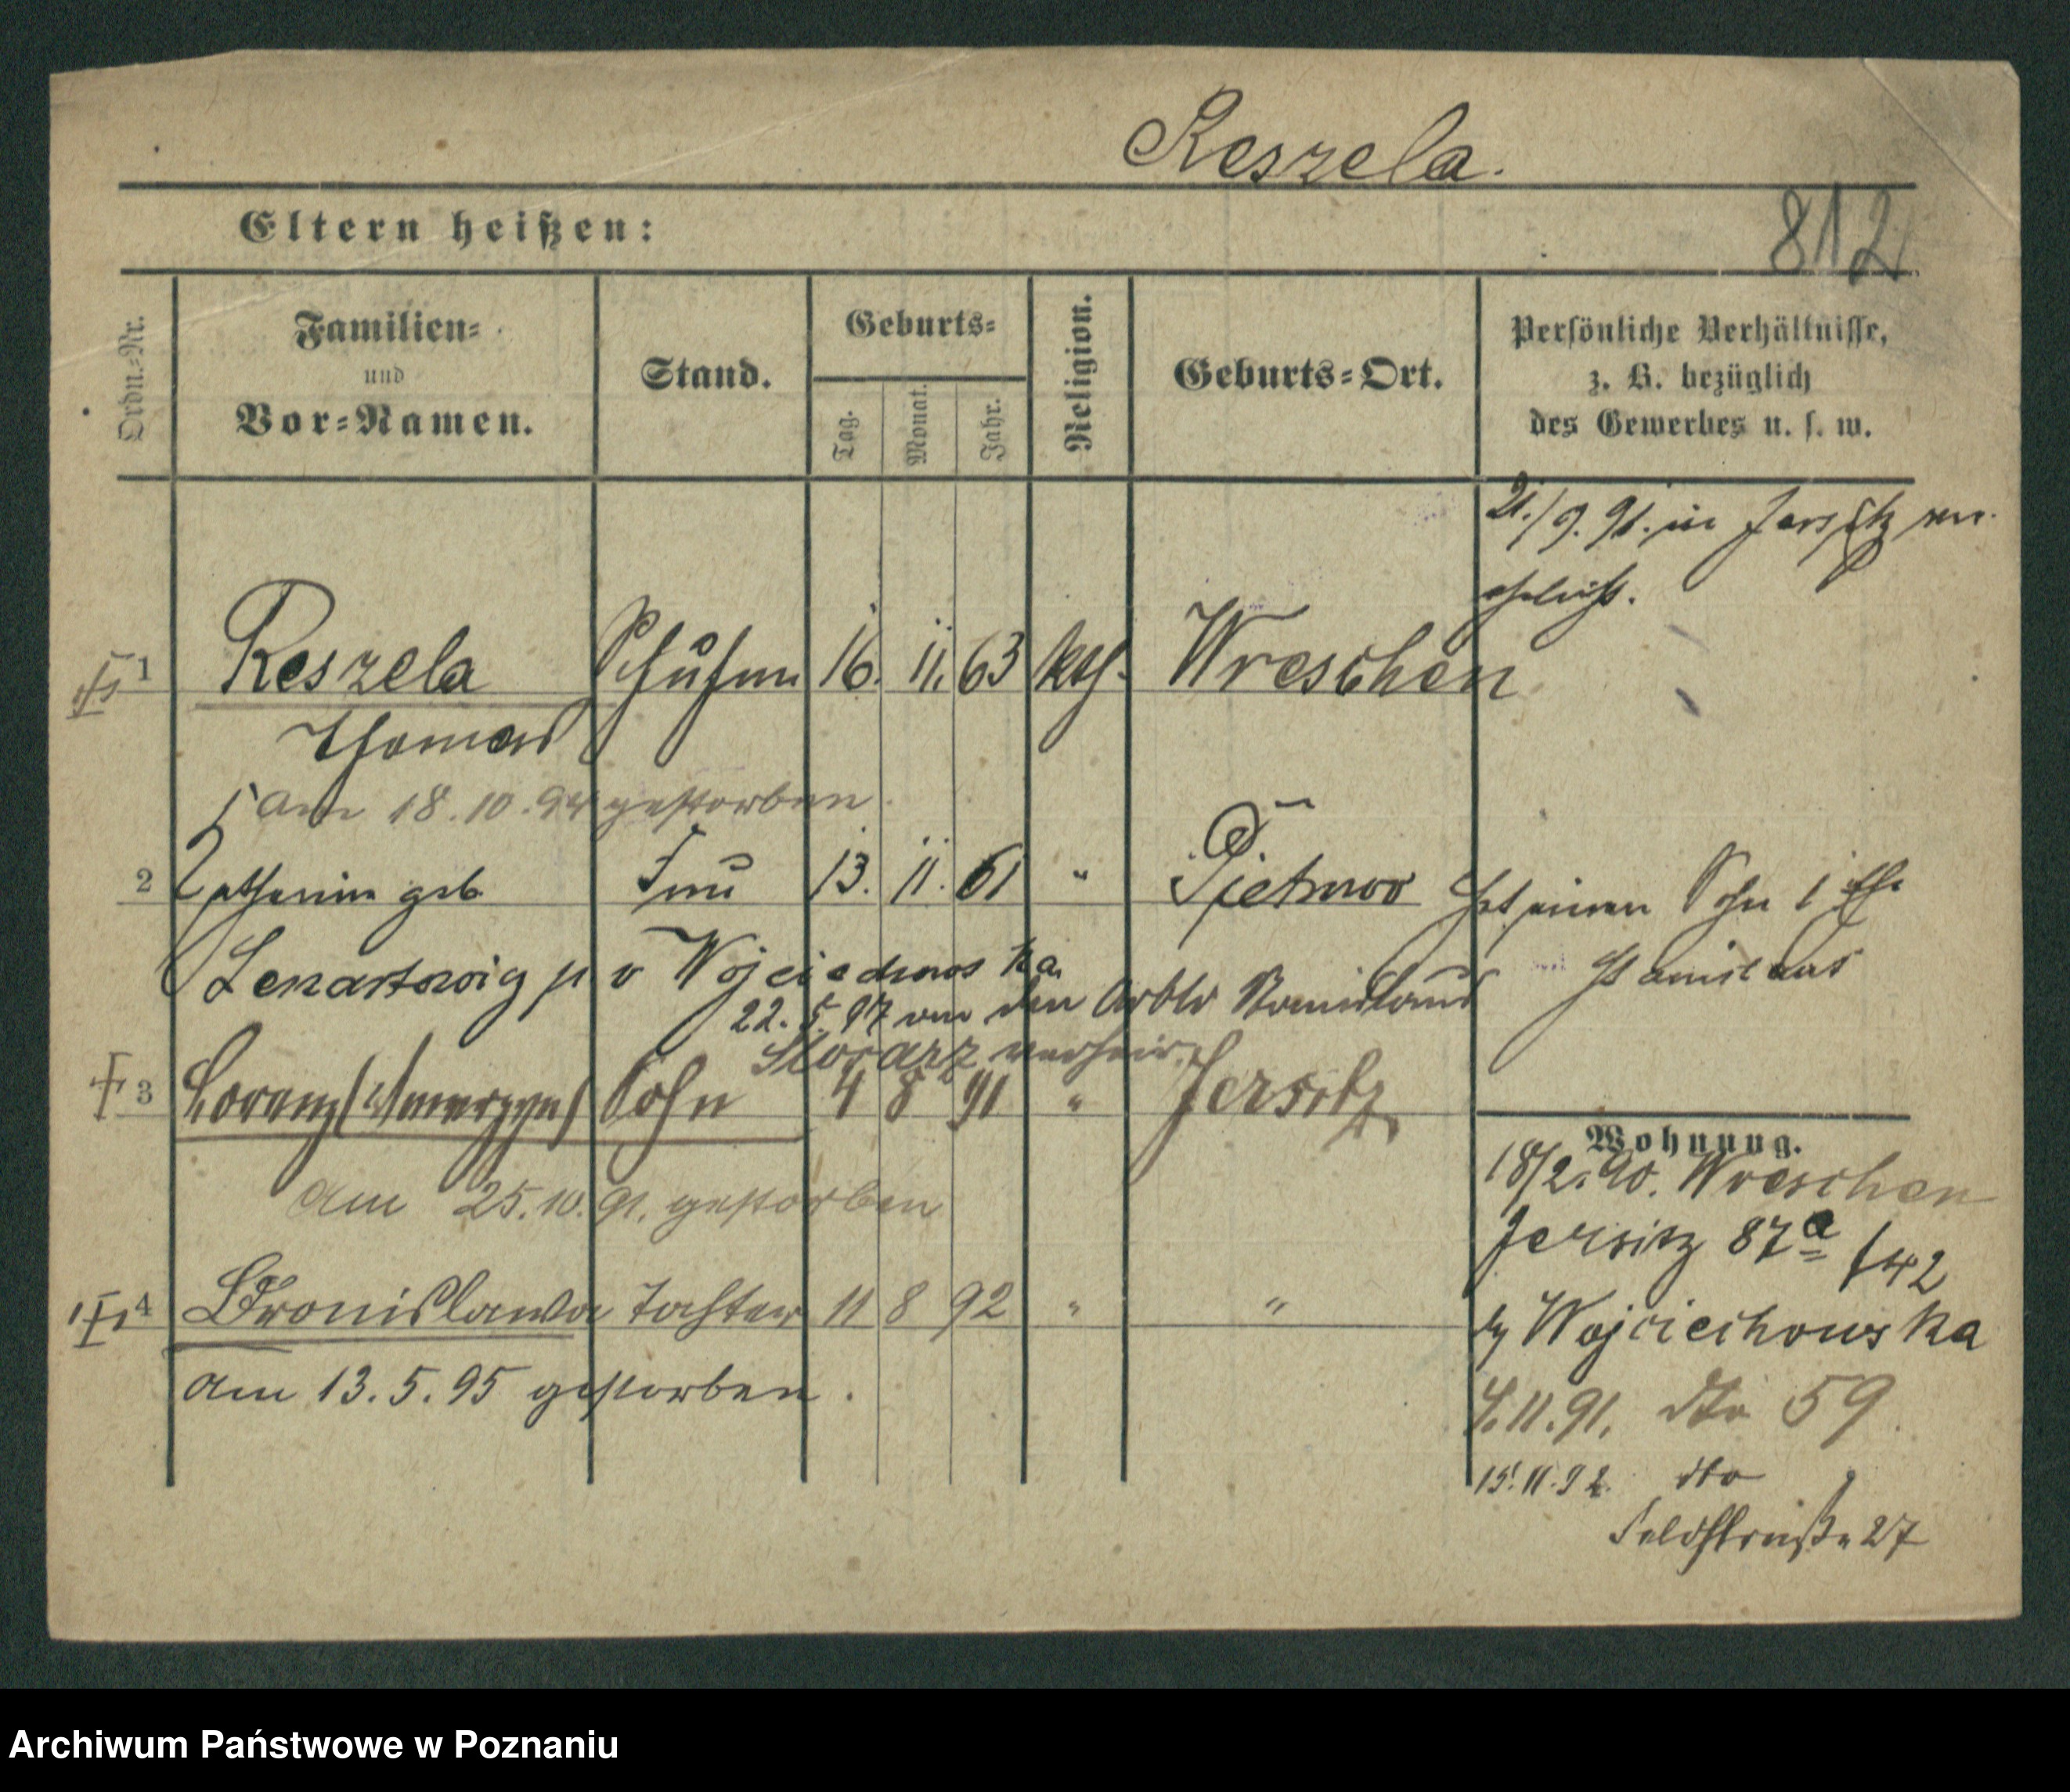 Reszela.
Eltern heißen:
812
Ordn.-Nr.
Familien-
und
Vor-Namen.
Stand.
Geburts-
Tag.
Monat.
Jahr.
Religion.
Geburts-Ort.
Persönliche Verhältnisse,
z. B. bezüglich
des Gewerbes u. s. w.
21./9. 91. in Jersitz
1 Reszela 16. 11. 63 kth. Wreschen
Thomas
am 18.10.94 gestorben.
2 Catharina geb. Frau 13. 11. 61 "
Hat einen Sohn 1 Ehe
v Wojciechowska
Stanislaus
22. 5. 97 von den Arbtr
verheir.
3 Lorenz Sohn 4 8 91 " Jersitz
am 25.10.91. gestorben
4 Bronislawa Tochter 11 8 92 " "
am 13.5.95 gestorben.
Wohnung.
18/2.90. Wreschen
Jersitz 87a
Wojciechowska
4.11.91. dto 59
15.11.92. dto
Feldstraße 27
Archiwum Państwowe w Poznaniu